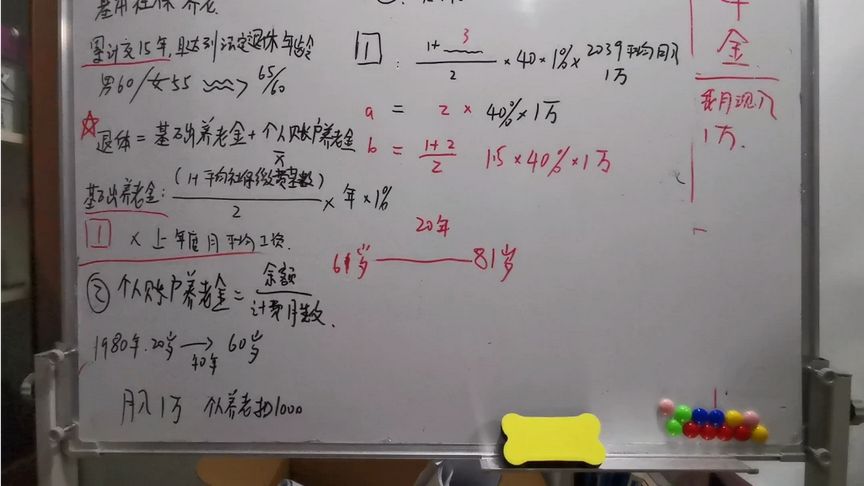 累计交15年,且达到法定退休年龄
男60/女55 ~~~> 65/60
☆退休=基础养老金+个人账户养老金
基础养老金:(1+平均社保缴费基数)/2 × 年×1%
1 × 上年度月平均工资.
② 个人账户养老金=余额/计费月数.
1980年.20岁 → 60岁
40年
月入1万 个人养老扣1000
1 : 1+3/2 ×40×1%×2039平均月入
1万
a = 2× 40%×1万
b = 1+2/2 1.5×40%×1万
20年
61岁——81岁
年
金
我月现入
1万.